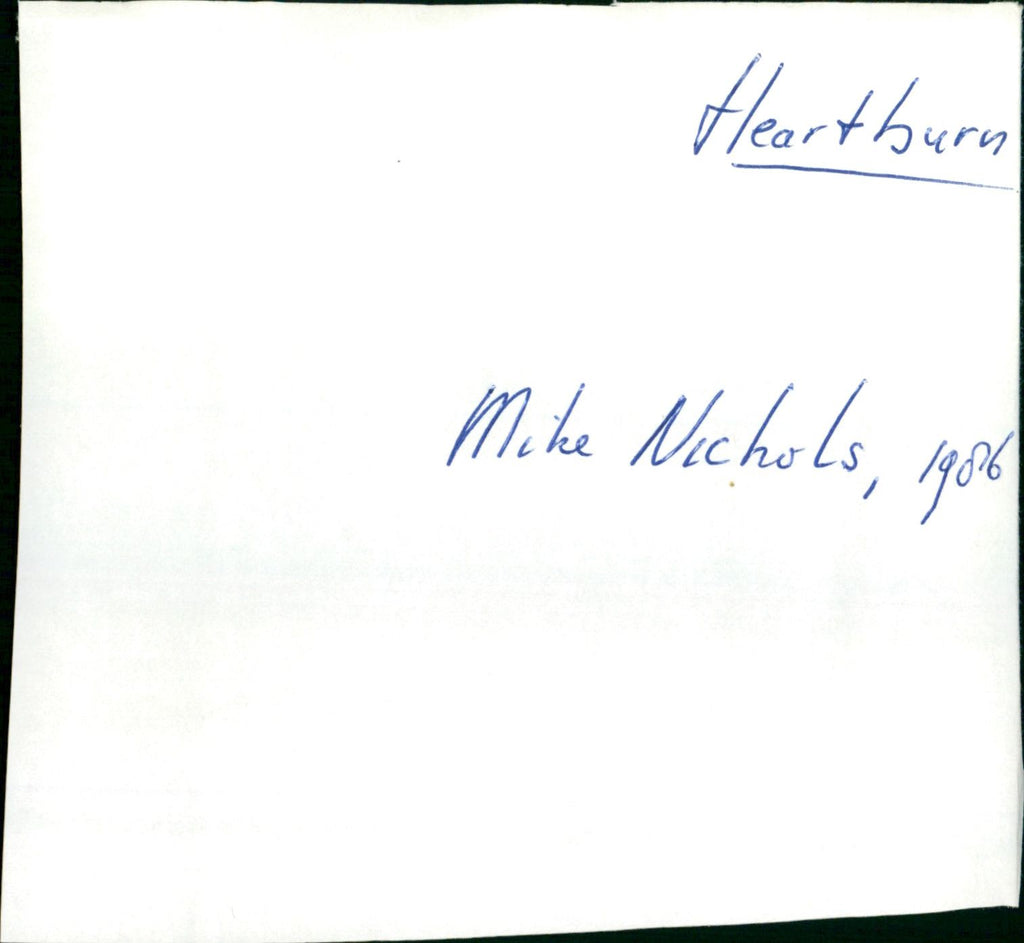 Heartburn
Mike Nichols, 1986